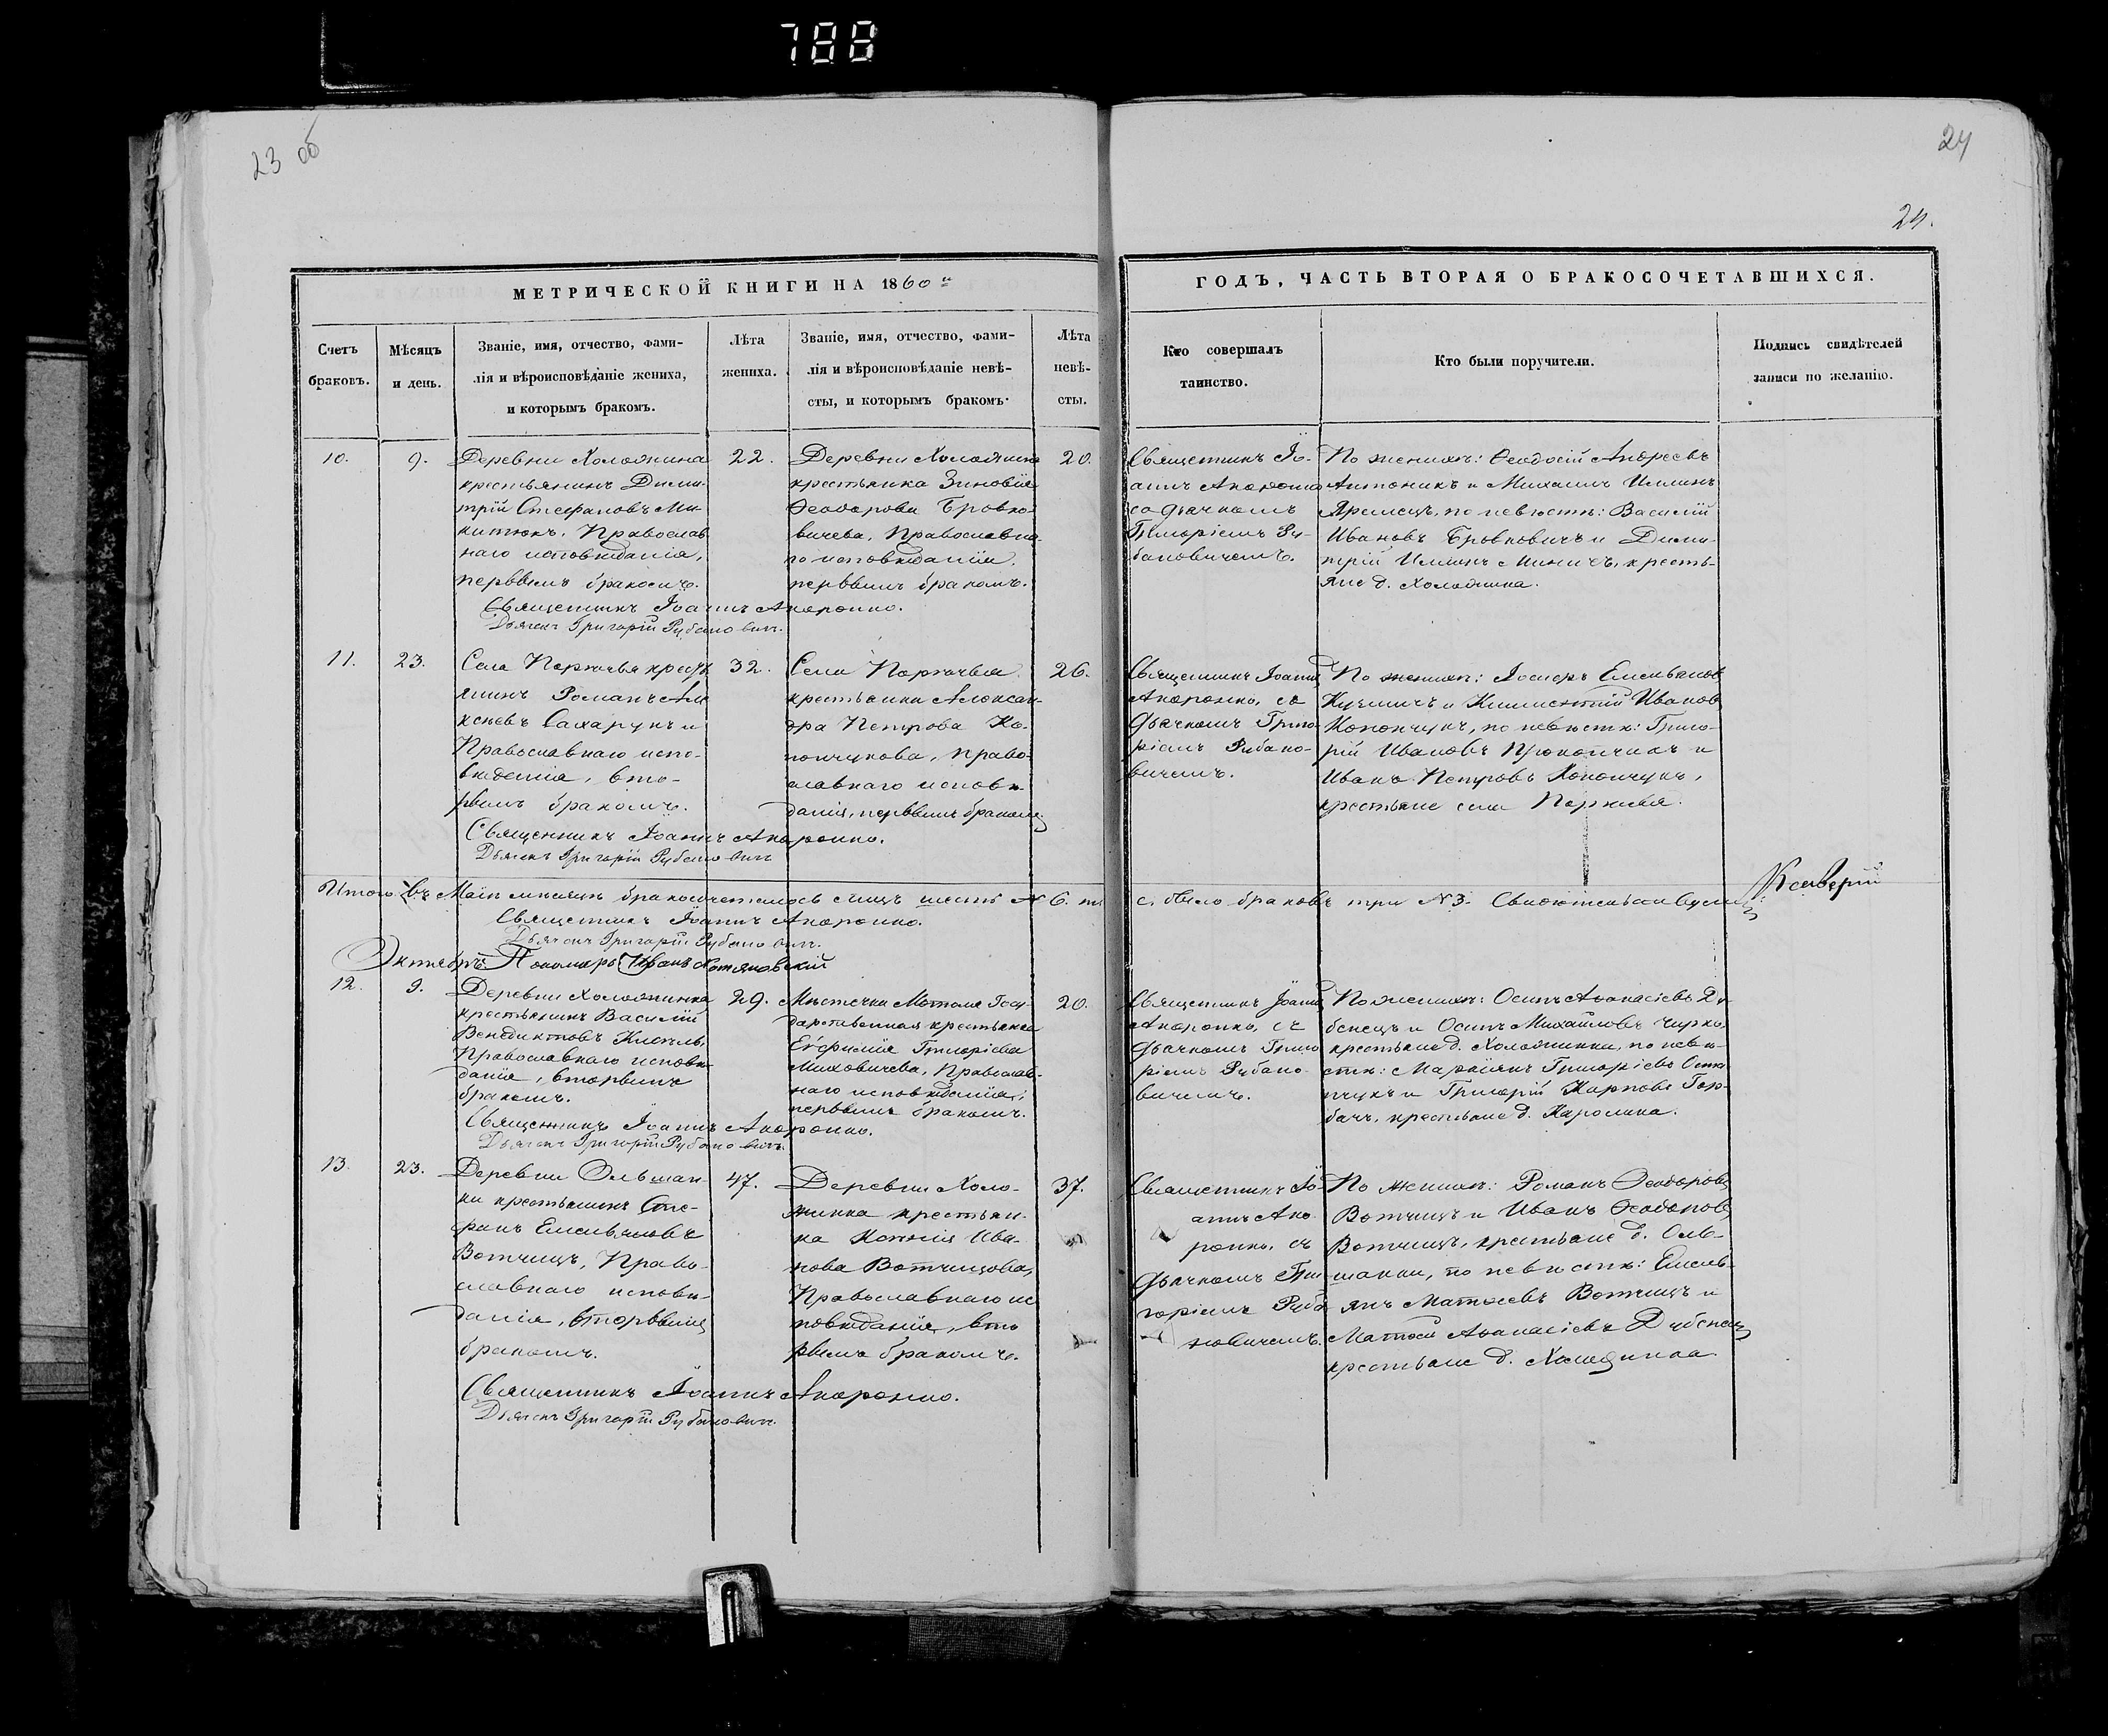 788
23 об
24
24.
МЕТРИЧЕСКОЙ КНИГИ НА 1860й
ГОДЪ, ЧАСТЬ ВТОРАЯ О БРАКОСОЧЕТАВШИХСЯ.
Счетъ
браковъ.
Мѣсяцъ
и день.
Званіе, имя, отчество, фами-
лія и вѣроисповѣданіе жениха,
и которымъ бракомъ.
Лѣта
жениха.
Званіе, имя, отчество, фами-
лія и вѣроисповѣданіе невѣ-
сты, и которымъ бракомъ.
Лѣта
невѣ-
сты.
Кто совершалъ
таинство.
Кто были поручители.
Подпись свидѣтелей
записи по желанію.
10.
9.
Деревни Холожина
крестьянинъ Дими-
трій Стефановъ Ми-
китюкъ, Православ
наго исповѣданія,
первымъ бракомъ.
22.
Деревни Холожина
крестьянка Зиновія
Ѳеодорова Бровко-
вичева, Православна-
го исповѣданія,
первымъ бракомъ.
20.
Священникъ Іо-
аннъ
со дьячкомъ
Григоріемъ Ру-
бановичемъ.
По женихѣ: Ѳеодосій Андреевъ
Антоникъ и Михаилъ Илминъ
Яремичъ, по невѣстѣ: Василій
Ивановъ Бровковичъ и Дими-
трій Илминъ кресть-
яне д. Холожина.
Священникъ Іоаннъ
Дьячекъ Григорій Рубановичъ.
11.
23.
Села Поречья кресть
янинъ Романъ Але
ксѣевъ Сахарукъ
Православнаго испо-
вѣданія, вто-
рымъ бракомъ.
32.
Села Поречья
крестьянка Алексан-
дра Петрова Ко-
нончукова, право-
славнаго исповѣ-
данія, первымъ бракомъ
26.
Священникъ Іоаннъ
съ
дьячкомъ Григо-
ріемъ Рубано-
вичемъ.
По женихѣ: Іосифъ Емельяновъ
Кузмичъ и Климентій Ивановъ
Конончукъ, по невѣстѣ: Григо-
рій Ивановъ Прокопчикъ и
Иванъ Петровъ Конончукъ,
крестьяне села Поречья.
Священникъ Іоаннъ
Дьячекъ Григорій Рубановичъ
Итого въ Маіѣ мѣсяцѣ бракосочеталось лицъ шесть № 6. т.
е. было браковъ три № 3. Свидѣтельствую
Ксаверій
Священникъ Іоаннъ
Дьячекъ Григорій Рубановичъ.
Октябрь. Пономарь Иванъ Котяновскій
12.
9.
Деревни Холожинка
крестьянинъ Василій
Венедиктовъ Кисель,
Православнаго исповѣ
данія, вторымъ
бракомъ.
29.
Мѣстечка Мотоля Госу-
дарственная крестьянка
Евфимія Григоріева
Миховичева, Православ-
наго исповѣданія,
первымъ бракомъ.
20.
Священникъ Іоаннъ
съ
дьячкомъ Григо
ріемъ Рубано-
вичемъ.
По женихѣ: Осипъ Аѳанасіевъ Ду-
бенецъ и Осипъ Михайловъ Чирко,
крестьяне д. Холожинки, по невѣ-
стѣ: Маркіянъ Григоріевъ Оста
пчукъ и Григорій Карповъ Гор-
бачъ, крестьяне д. Каролина.
Священникъ Іоаннъ
Дьячекъ Григорій Рубановичъ.
13.
23.
Деревни Ольшан-
ки крестьянинъ Сте-
фанъ Емельяновъ
Вотчицъ, Право-
славнаго исповѣ-
данія, вторымъ
бракомъ.
47.
Деревни Холо-
жинка крестьян-
ка Ксенія Ива-
нова Вотчицова,
Православнаго ис
повѣданія, вто
рымъ бракомъ.
37.
Священникъ Іо-
аннъ
съ
дьячкомъ Гри
горіемъ Руба
новичемъ.
По женихѣ: Романъ Ѳеодоровъ
Вотчицъ и Иванъ Ѳеодоровъ
Вотчицъ, крестьяне д. Оль-
шанки, по невѣстѣ: Емель-
янъ Матвѣевъ Вотчицъ и
Матвей Аѳанасіевъ Дубенецъ
крестьяне д. Холожинка
Священникъ Іоаннъ
Дьячекъ Григорій Рубановичъ.